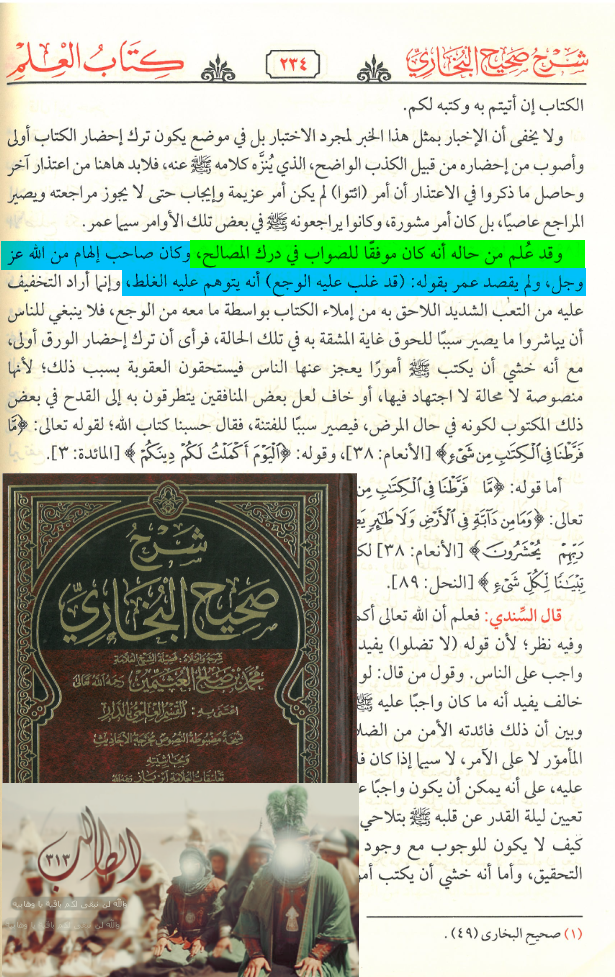 شرح صحيح البخاري
٢٣٤
كتاب العلم
الكتاب إن أتيتم به وكتبه لكم.
ولا يخفى أن الإخبار بمثل هذا الخبر لمجرد الاختبار بل في موضع يكون ترك إحضار الكتاب أولى
وأصوب من إحضاره من قبيل الكذب الواضح، الذي يُنزَّه كلامه ﷺ عنه، فلابد هاهنا من اعتذار آخر
وحاصل ما ذكروا في الاعتذار أن أمر (ائتوا) لم يكن أمر عزيمة وإيجاب حتى لا يجوز مراجعته ويصير
المراجع عاصيًا، بل كان أمر مشورة، وكانوا يراجعونه ﷺ في بعض تلك الأوامر سيما عمر.
وقد عُلم من حاله أنه كان موفقًا للصواب في درك المصالح، وكان صاحب إلهام من الله عز
وجل، ولم يقصد عمر بقوله: (قد غلب عليه الوجع) أنه يتوهم عليه الغلط، وإنما أراد التخفيف
عليه من التعب الشديد اللاحق به من إملاء الكتاب بواسطة ما معه من الوجع، فلا ينبغي للناس
أن يباشروا ما يصير سببًا للحوق غاية المشقة به في تلك الحالة، فرأى أن ترك إحضار الورق أولى،
مع أنه خشي أن يكتب ﷺ أمورًا يعجز عنها الناس فيستحقون العقوبة بسبب ذلك؛ لأنها
منصوصة لا محالة لا اجتهاد فيها، أو خاف لعل بعض المنافقين يتطرقون به إلى القدح في بعض
ذلك المكتوب لكونه في حال المرض، فيصير سببًا للفتنة، فقال حسبنا كتاب الله؛ لقوله تعالى: ﴿مَّا
فَرَّطْنَا فِي الْكِتَابِ مِن شَيْءٍ﴾ [الأنعام: ٣٨]، وقوله: ﴿الْيَوْمَ أَكْمَلْتُ لَكُمْ دِينَكُمْ﴾ [المائدة: ٣].
أما قوله: ﴿مَّا فَرَّطْنَا فِي الْكِتَابِ مِن
تعالى: ﴿وَمَا مِن دَابَّةٍ فِي الْأَرْضِ وَلَا طَائِرٍ
رَبِّهِمْ يُحْشَرُونَ﴾ [الأنعام: ٣٨]
تِبْيَانًا لِّكُلِّ شَيْءٍ﴾ [النحل: ٨٩].
قال السِّندي: فعلم أن الله تعالى
وفيه نظر؛ لأن قوله (لا تضلوا) يفيد
واجب على الناس. وقول من قال: لو
خالف يفيد أنه ما كان واجبًا عليه ﷺ
وبين أن ذلك فائدته الأمن من
المأمور لا على الآمر، لا سيما إذا كان
عليه، على أنه يمكن أن يكون واجبًا
تعيين ليلة القدر عن قلبه ﷺ بتلاحي
كيف لا يكون للوجوب مع وجود
التحقيق، وأما أنه خشي أن يكتب
(١) صحيح البخاري (٤٩).
شرح
صحيح البخاري
شرح وإملاء: فضيلة الشيخ العلامة
محمد بن صالح العثيمين رحمه الله تعالى
اعتنى به: القسم العلمي بالدار
الطالب
٣١٣
والله لن تبقى لكم باقية يا وهابية
والله لن تبقى لكم باقية يا وهابية